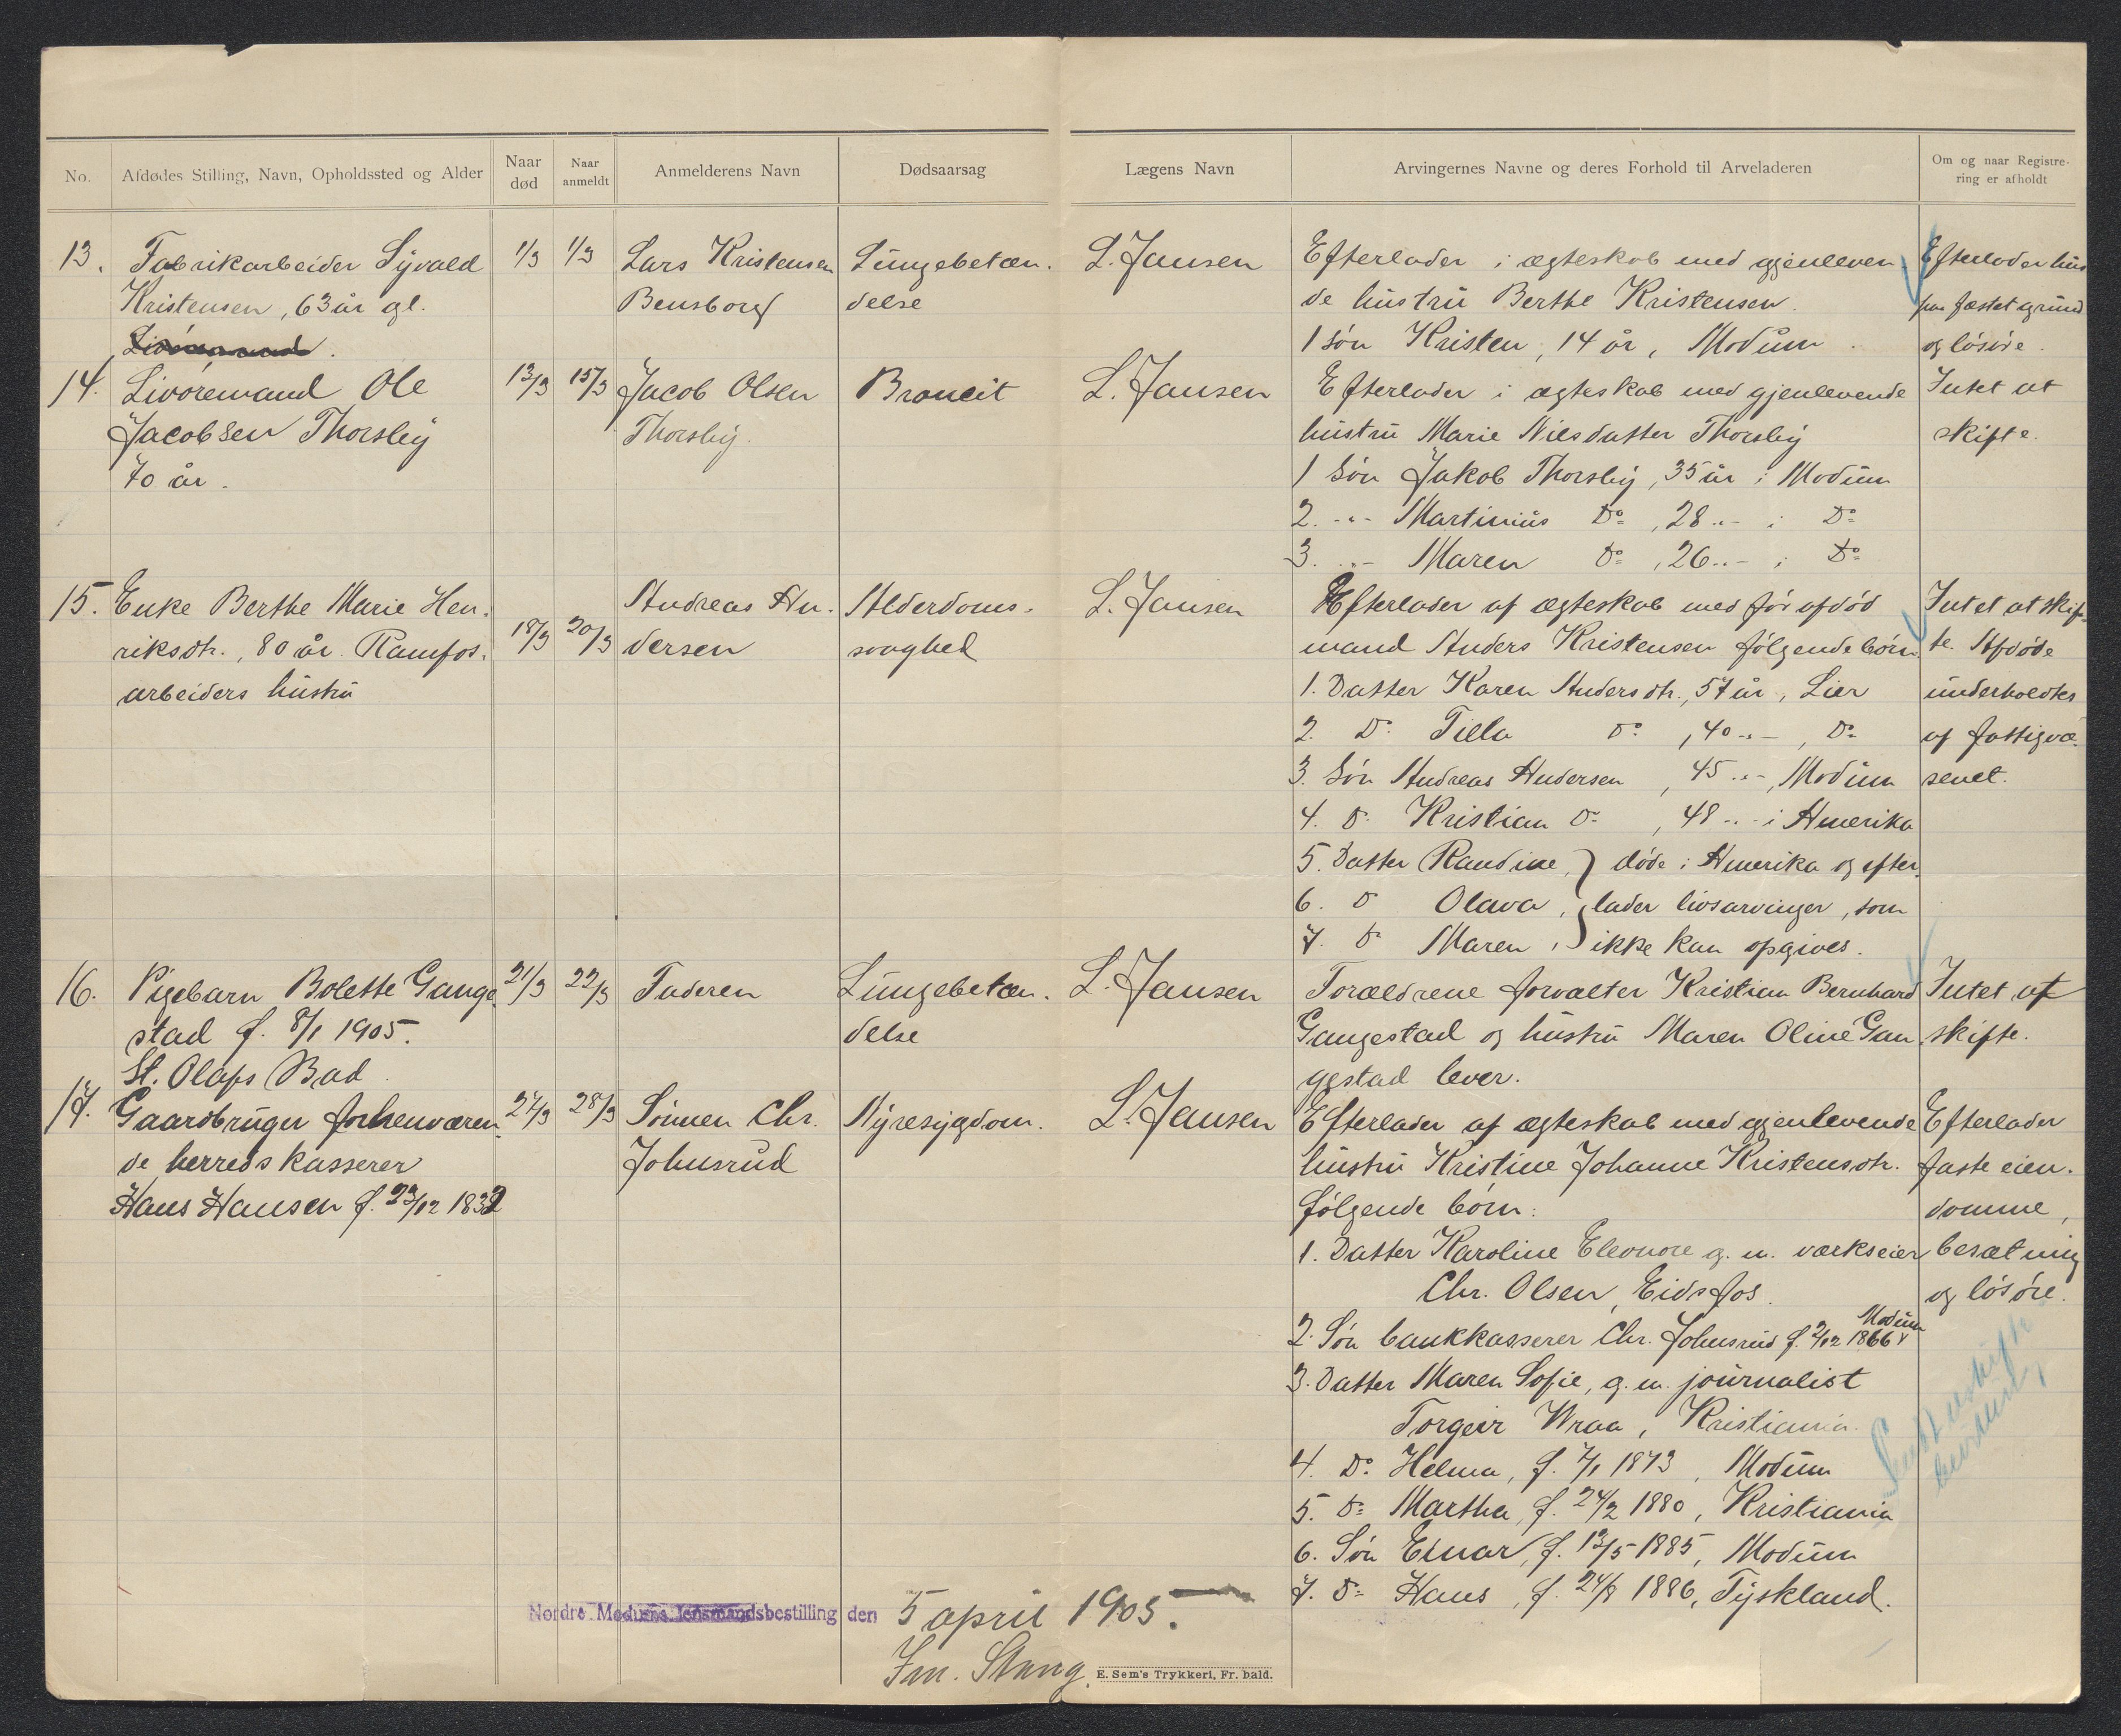 No.
Afdødes Stilling, Navn, Opholdssted og Alder
Naar død
Naar anmeldt
Anmelderens Navn
Dødsaarsag
Lægens Navn
Arvingernes Navne og deres Forhold til Arveladeren
Om og naar Registrering er afholdt
13.
Fabrikarbeider Syvald
Kristensen, 63 år gl.
1/3
1/3
Lars Kristensen
Bensborg
Lungebetæn-
delse
L. Jansen
Efterlader i ægteskab med gjenleven
de hustru Berthe Kristensen.
1 søn Kristen, 14 år, Modum.
Efterlader hus
paa fæstet grund
og løsøre
14.
Livøremand Ole
Jacobsen Thorsby
70 år.
13/3
15/3
Jacob Olsen
Thorsby.
Broncit
L. Jansen
Efterlader i ægteskab med gjenlevende
hustru Marie Nilsdatter Thorsby
1 Søn Jakob Thorsby, 35 år i Modum
2. -"- Martinius Do , 28 -"- i Do
3. -"- Maren Do , 26 -"- i Do
Intet at
skifte.
15.
Enke Berthe Marie Hen-
riksdtr., 80 år. Ramfos-
arbeiders hustru
18/3
20/3
Andreas An-
dersen
Alderdoms-
svaghed
L. Jansen
Efterlader af ægteskab med før afdød
mand Anders Kristensen følgende børn
1. Datter Karen Andersdtr., 57 år, Lier
2. Do Tilla Do , 40 -"- , Do
3. Søn Andreas Andersen , 45 -"-, Modum
4. Do Kristian Do , 48 -"- i Amerika
5. Datter Randine, } døde i Amerika og efter-
6. Do Olava, } lader livsarvinger, som
7. Do Maren, } ikke kan opgives.
Intet at skif-
te. Afdøde
underholdtes
af fattigvæ-
senet.
16.
Pigebarn Bolette Gange-
stad f. 8/1 1905.
St. Olafs Bad
21/3
22/3
Faderen
Lungebetæn-
delse
L. Jansen
Forældrene forvalter Kristian Bernhard
Gangestad og hustru Maren Oline Gan-
gestad lever.
Intet at
skifte.
17.
Gaardbruger forhenværen-
de herredskasserer
Hans Hansen f. 23/12 1832
27/3
28/3
Sønnen Chr.
Johnsrud
Nyresygdom.
L. Jansen
Efterlader af ægteskab med gjenlevende
hustru Kristine Johanne Kristensdtr.
følgende børn:
1. Datter Karoline Eleonore g. m. værkseier
Chr. Olsen, Eidsfos.
Modum
2. Søn bankkasserer Chr. Johnsrud f. 2/12 1866
3. Datter Maren Sofie, g. m. journalist
Torgeir Vraa, Kristiania.
4. Do Helma, f. 7/1 1873, Modum
5. Do Martha, f. 24/2 1880, Kristiania
6. Søn Einar, f. 13/5 1885, Modum
7. Do Hans, f. 24/8 1886, Tyskland.
Efterlader
faste eien-
domme,
besætning
og løsøre.
Nordre Modums lensmandsbestilling den 5 april 1905.
Stang.
E. Sem's Trykkeri, Fr. hald.